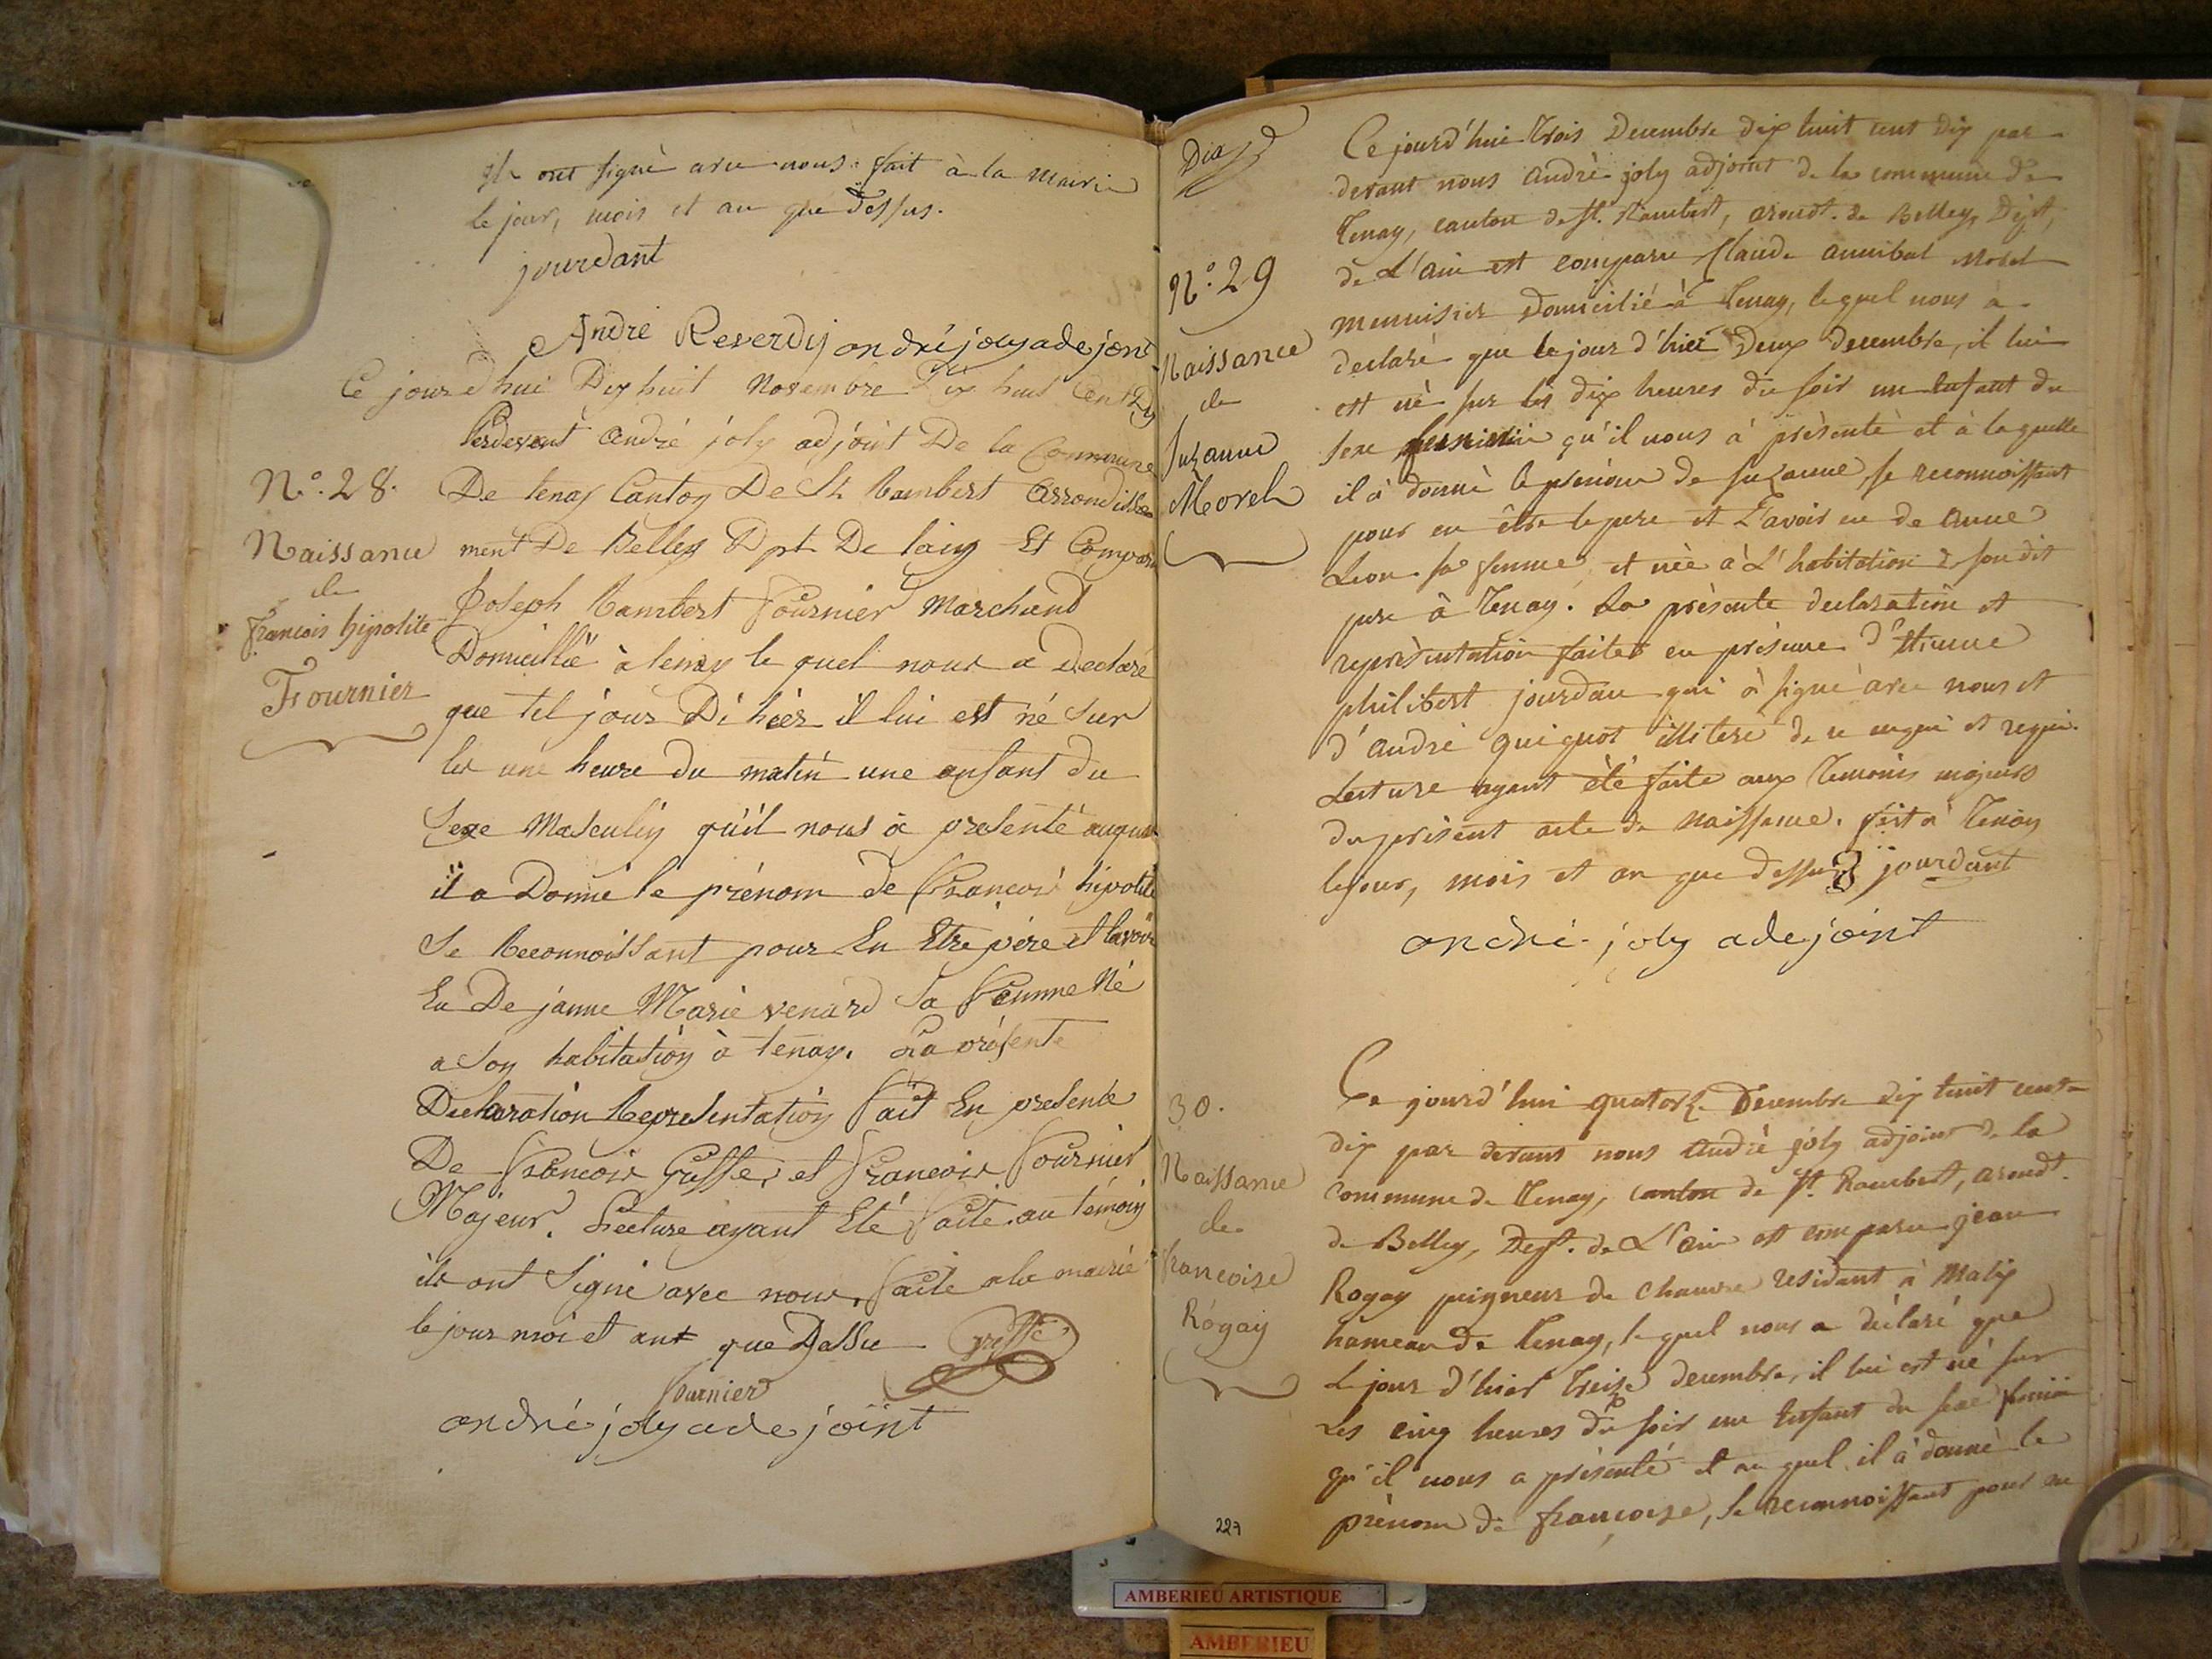 ils ont signè avec nous. fait à la Mairie
le jour, mois et an que dessus.
jourdant
André Reverdy andré joly adejoint
Ce jourdhui Dix huit Novembre Dix huit Cent Dix
Perdevent André joly adjoint De la Commune
N.º 28.
De tenay Canton De St Rambert Arrondisse
Naissance
ment De Belley Dpt De lain Est Comparu
de
Joseph Rambert Fournier Marchand
françois hipolite
Domicillié à tenay le quel nous a Declaré
Fournier
que tel jour Di hier il lui est né sur
les une heure du matin une anfant du
Sexe Masculin qu'il nous à presenté auquel
il a Donné le prénom de François hipolite
Se Reconnoissant pour En Etre père et lavoir
Eu De janne Marie venard Sa Femme Né
a Son habitation à tenay. La présente
Declaration Representation Fait En presente
De François Griffe, et François Fournier
Majeur. Lecture ayant Eté Faite au témoin
ils ont Signé avec nous, Faite a la mairie
le jour moi et ant que Dessu griffe
fournier
andré joly adejoint
N.º 29
Naissance
de
Suzanne
Morel
Ce jourd'hui trois Decembre dix huit cent dix par
devant nous andrè joly adjoint de la commune de
Tenay, canton de St. Rambert, arondt. de Belley, Dépt,
de L'ain est comparu Claude annibal Morel
menuisier Domicilié à Tenay, lequel nous a
declaré que le jour d'hier Deux decembre, il lui
est nè sur les dix heures du soir un Enfant du
sexe feminin qu'il nous à présentè et à laquelle
il à donnè le prénom de suzanne, se reconnoissant
pour en être le pere et L'avoir eu de anne
Leon sa femme, et nèe à L'habitation de sondit
pere à Tenay. La prèsente declaration et
reprèsentation faites en prèsence d'Etienne
philibert jourdan qui à signè avec nous et
d'andrè quignot illiterè de ce enquis et requi.
Lecture ayant ètè faite aux Temoins majeurs
du prèsent acte de Naissance. fait à Tenay
le jour, mois et an que dessus jourdant
andré joly adejoint
30.
Naissance
de
francoise
Rògay
Ce jourd'hui quatorze Decembre dix huit cent
dix par devant nous Andrè joly adjoint de la
commune de Tenay, canton de St. Rambert, arondt.
de Belley, Dept. de L'ain est comparu jean
Rogay peigneur de Chanvre residant à Malix
hameau de Tenay, lequel nous a déclaré que
Le jour d'hier Treize decembre, il lui est né sur
Les cinq heures du soir un Enfant du sexe feminin
qu'il nous a présenté et au quel il à donnè le
prènom de françoise, se reconnoissant pour en
227
AMBERIEU ARTISTIQUE
AMBERIEU